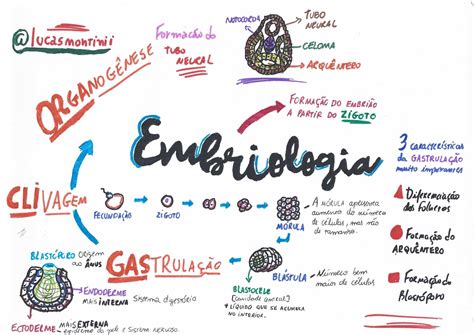 @lucasmontinii
ORGANOGÊNESE
Formação do
TUBO
NEURAL
NOTOCORDA
TUBO
NEURAL
CELOMA
ARQUÊNTERO
FORMAÇÃO DO EMBRIÃO
A PARTIR DO ZIGOTO
Embriologia
3 características
da GASTRULAÇÃO
muito importantes
Diferenciação dos
Folhetos
Formação do
ARQUÊNTERO
Formação do
Blastóporo
CLIVAGEM
FECUNDAÇÃO
ZIGOTO
MÓRULA
A MÓRULA apresenta
aumento do número
de células, mas não
de tamanho.
BLÁSTULA
Número bem
maior de células
BLASTOCELE
(cavidade central)
+ LÍQUIDO QUE SE ACUMULA
NO INTERIOR.
GASTRULAÇÃO
BLASTÓPORO ORIGEM
ao ÂNUS
ENDODERME
MAIS INTERNA
Sistema digestório
ECTODERME
MAIS EXTERNA
da pele e Sistema nervoso